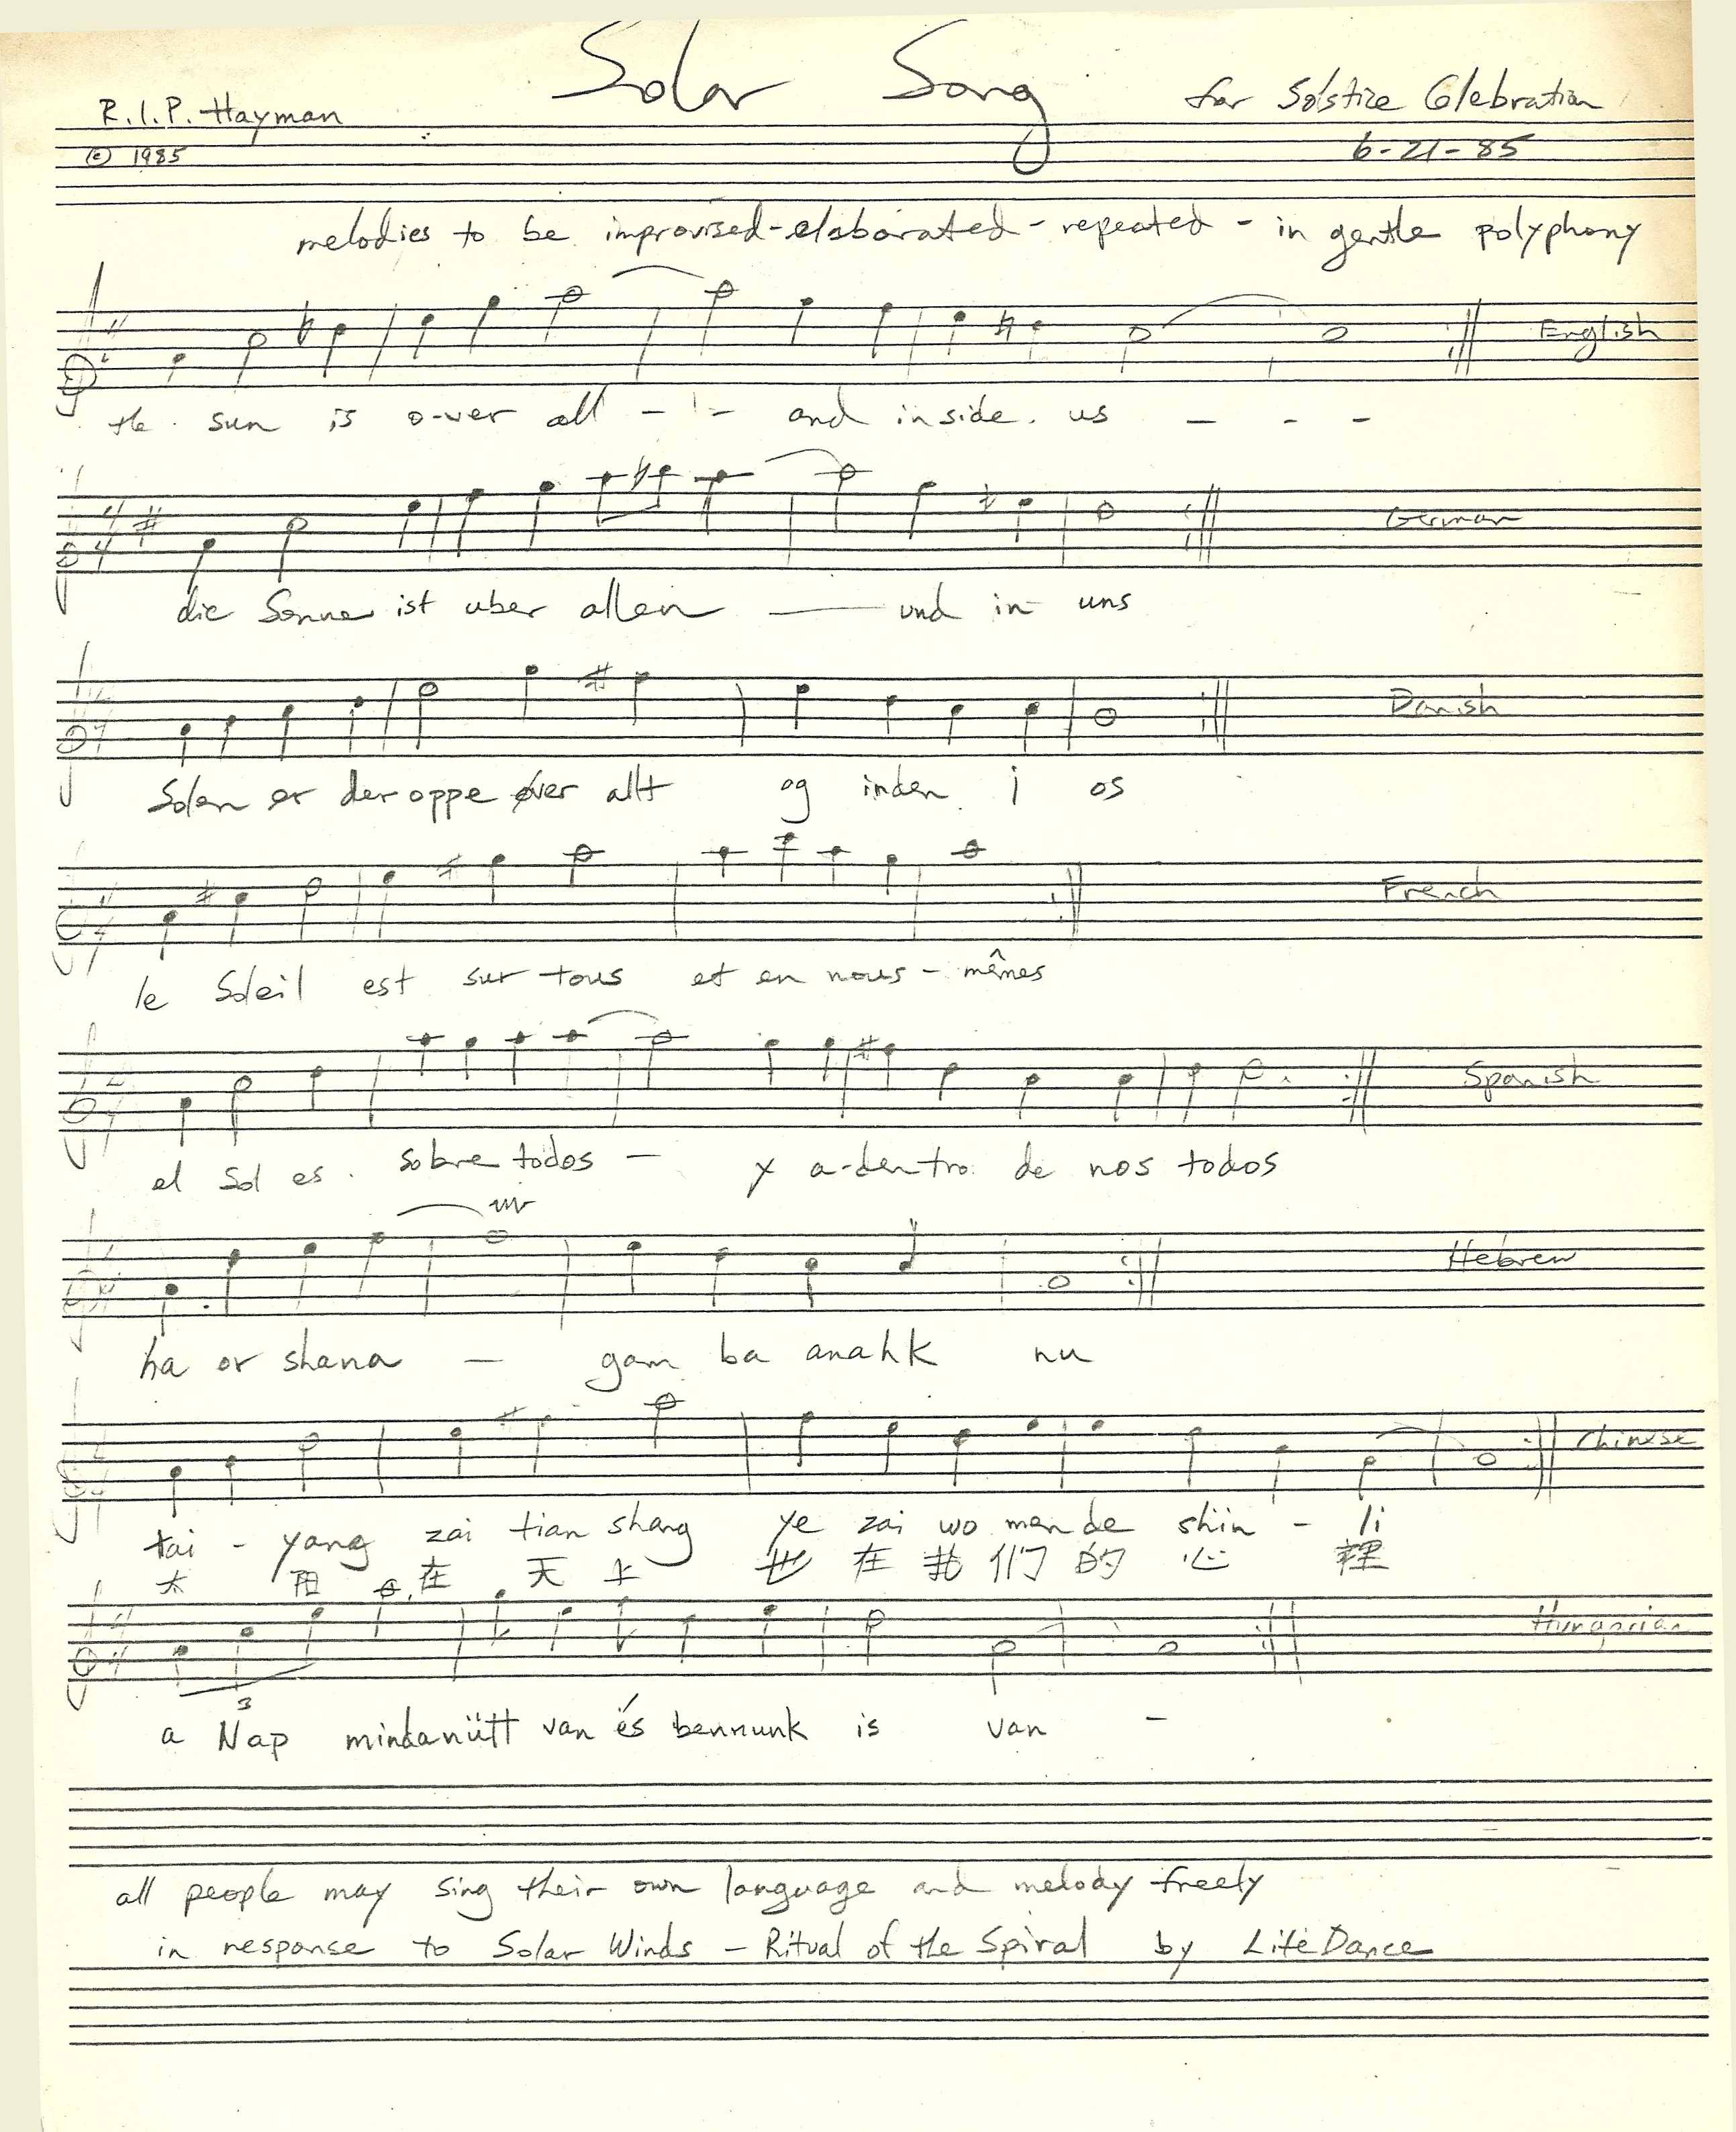 Solar Song
R.I.P. Hayman
for Solstice Celebration
© 1985
6-21-85
melodies to be improvised-elaborated-repeated - in gentle polyphony
English
the sun is o-ver all - - and inside us - - -
4/4
German
die Sonne ist uber allen — und in uns
Danish
Solen er der oppe øver allt og inden i os
French
le Soleil est sur tous et en nous-mêmes
Spanish
el Sol es sobre todos - y a-dentro de nos todos
Hebrew
ha or shana - gam ba anahk nu
Chinese
tai - yang zai tian shang ye zai wo men de shin - li
太 阳 在 天 上 也 在 我 们 的 心 裡
Hungarian
3
a Nap mindanütt van és bennunk is van -
all people may sing their own language and melody freely
in response to Solar Winds - Ritual of the Spiral by Life Dance